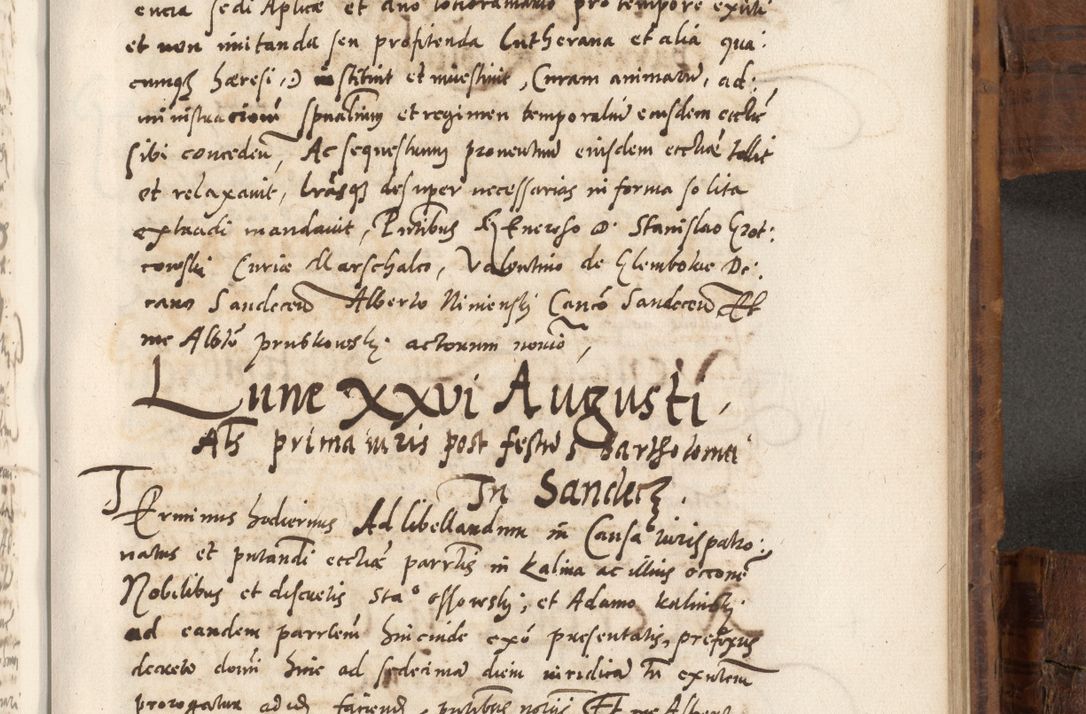 encia sedi Aplicæ et dno loci ordinario pro tempore
et non imitanda seu profitenda Lutherana et alia qua:
cunq₃ hæresi,) instituit et investivit, Curam animarū, ad:
ministracionē spualium et regimen temporaliū eiusdem eccliæ
sibi concedeñ, Ac sequestrum proventuū eiusdem eccliæ tollit
et relaxavit, Lrasq₃ desuper necessarias in forma solita
extradi mandavit, Pntibus Generoso D. Stanislao Grot:
cowski Curiæ Marschalco, Valentino de Glembokie De:
cano Sandeceñ Alberto Nimensky Canco Sandeceñ Et
me Albto prubkowsky actorum norio,
Lune XXVI Augusti,
Als prima iuris post festū S Bartholomei
In Sandecz.
Terminus hodiernus Ad libellandum in Causa iurispatro:
natus et putandi eccliæ parrlis in Kalina ac illius occone
Nobilibus et discretis Stao ossowsky, et Adamo Kalinsky
ad eandem parrlem hincinde presentatis, prefixus
decreto domi hinc ad sedecimā diem iuridicā
prorogatur ad id faciend, pntibus